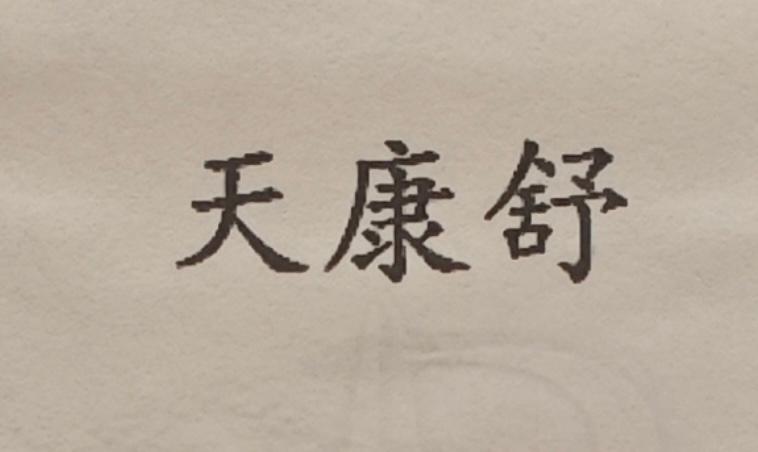 天康舒